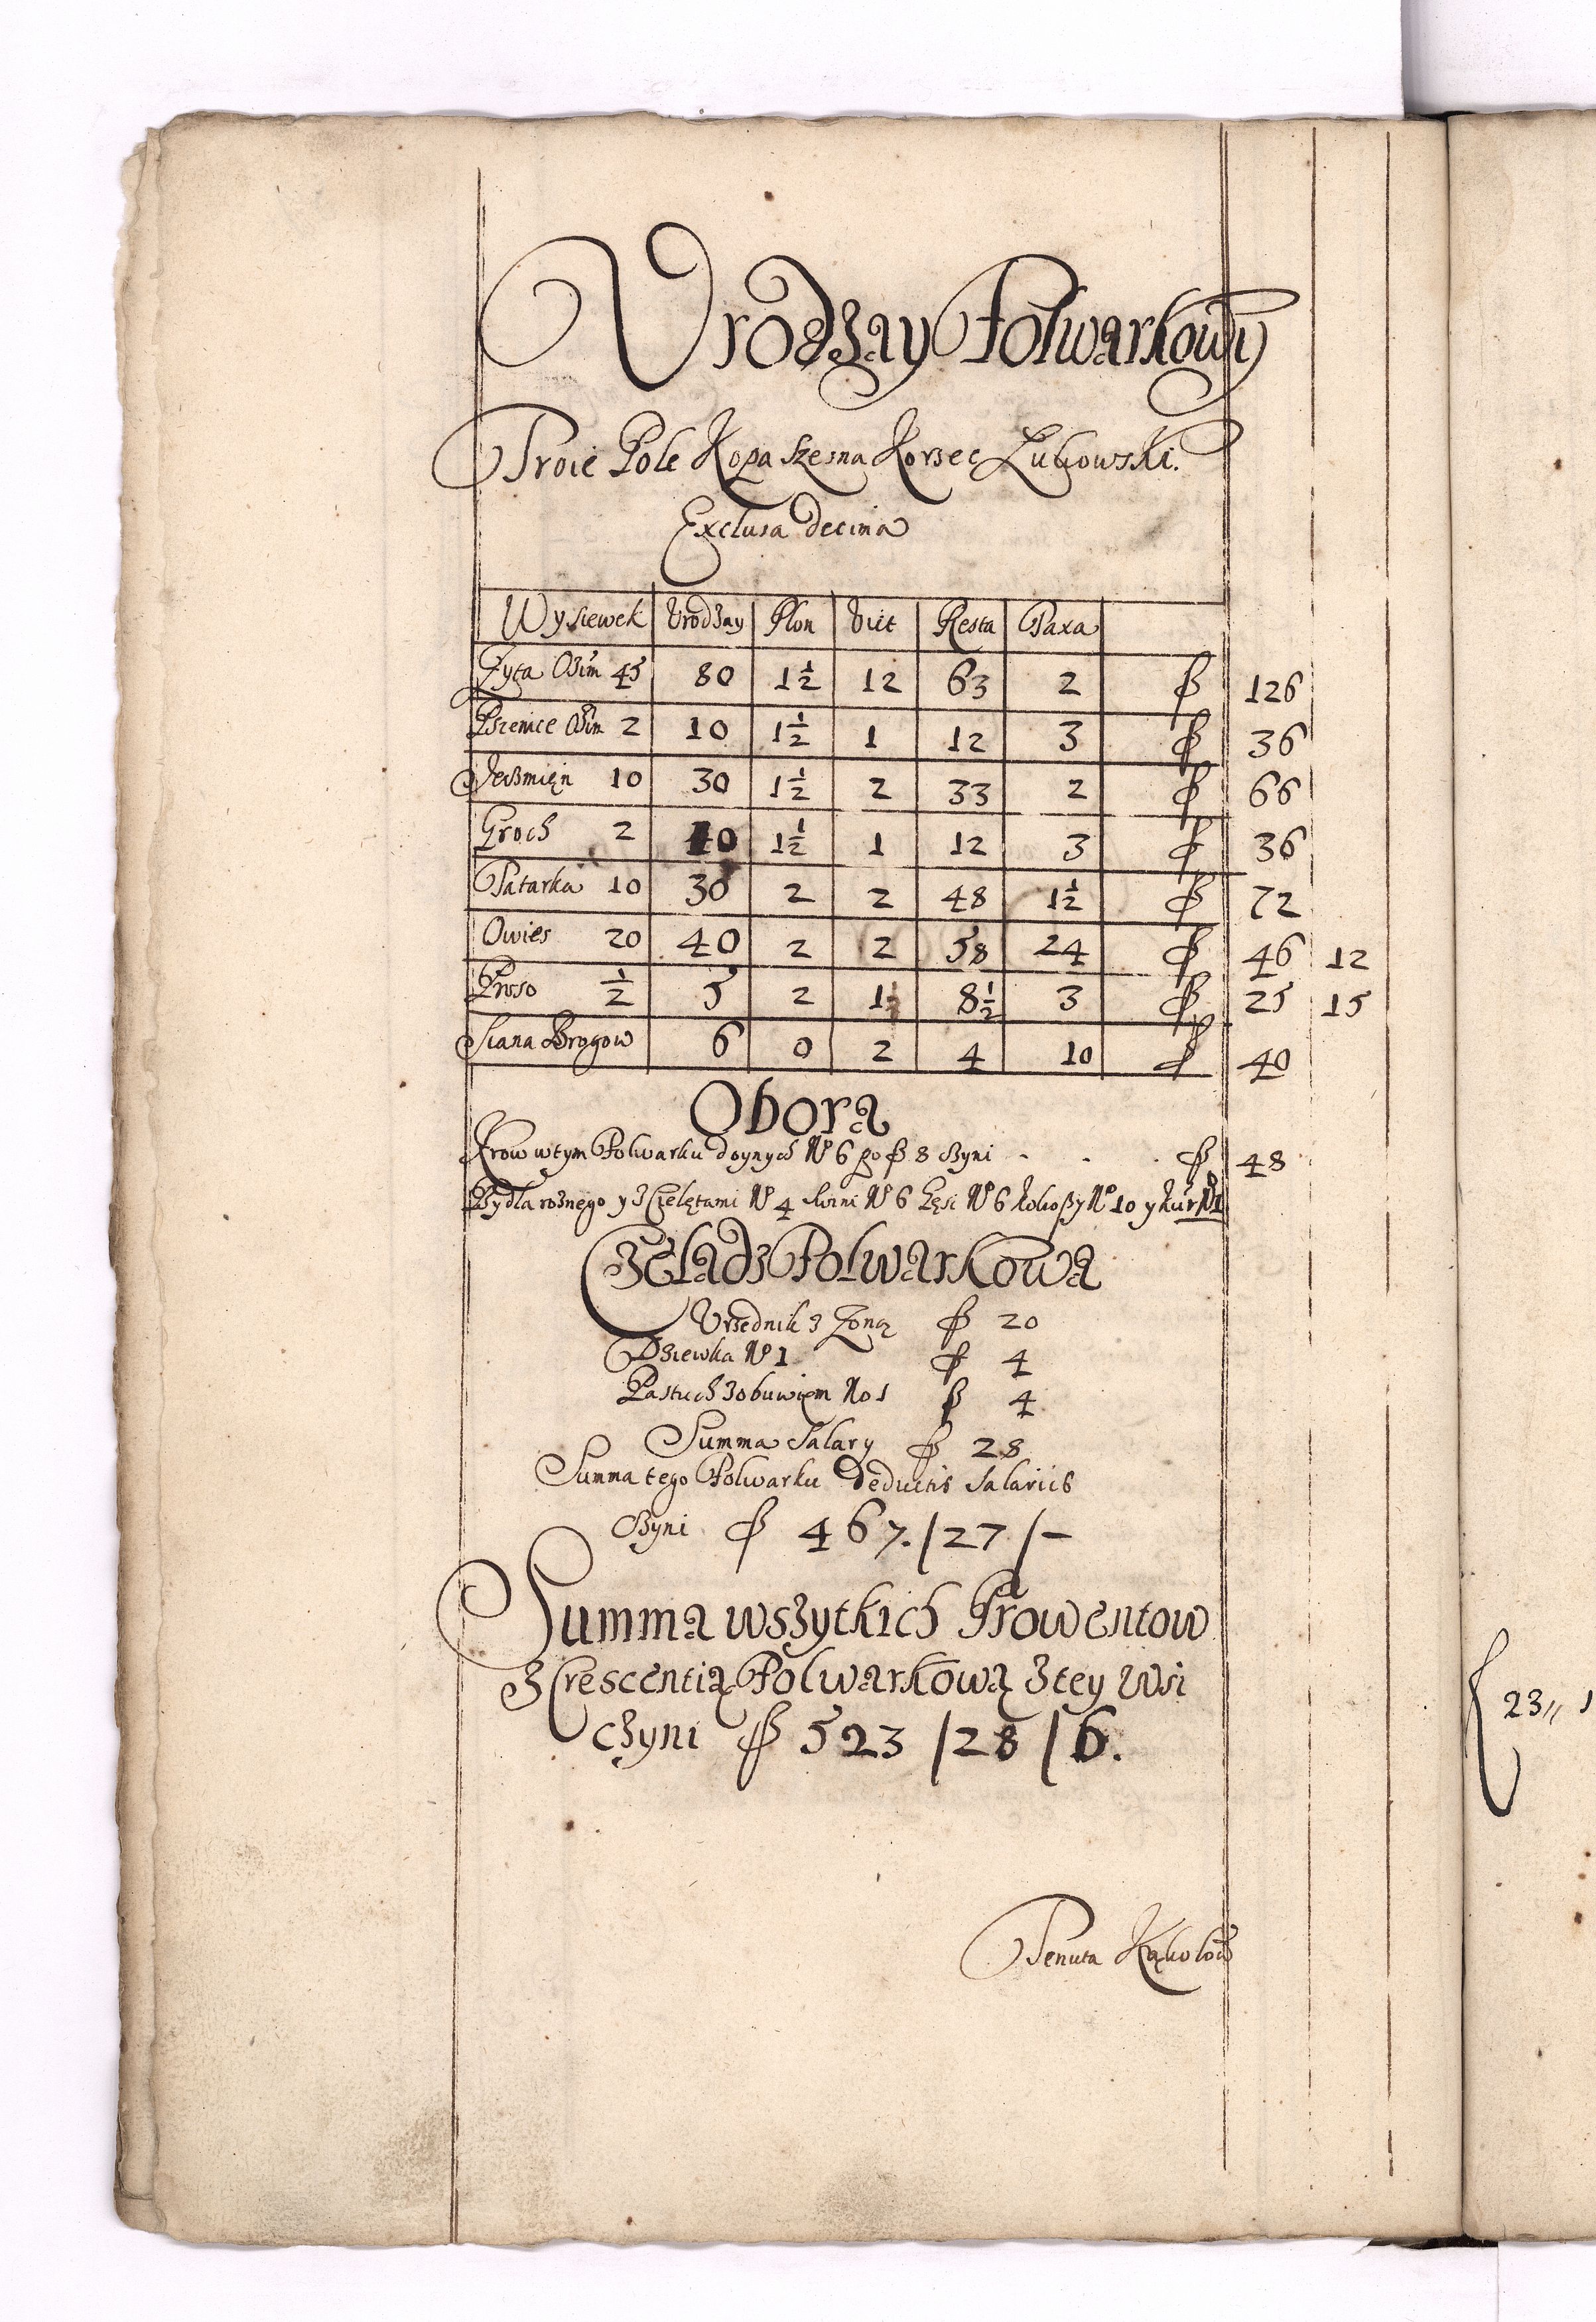 Vrodzay Folwarkowy
Troie Pole Kopa szesna Korzec Łukowski.
Exclusa decima
Wysiewek Vrodzay Plon Vict Resta Taxa
Zyta Ozim 45 80 1 1/2 12 63 2 f 126
Pszenice Ozim 2 10 1 1/2 1 12 3 f 36
Jeczmięn 10 30 1 1/2 2 33 2 f 66
Groch 2 10 1 1/2 1 12 3 f 36
Tatarka 10 30 2 2 48 1 1/2 f 72
Owies 20 40 2 2 58 24 f 46 12
Proso 1/2 5 2 1 1/2 8 1/2 3 f 25 15
Siana Brogow 6 0 2 4 10 f 40
Obora
Krow w tym Folwarku doynych No 6 po f 8 czyni . . . f 48
Bydla roznego y z Cielętami No 4 swini No 6 Gęsi No 6 kokoszy No 10 y kur No 1
Czeladz Folwarkowa
Vrzednik z Zoną f 20
Dziewka No 1 f 4
Pastuch z obuwięm No 1 f 4
Summa Salary f 28
Summa tego Folwarku deductis Salariis
czyni f 467. / 27 / –
Summa wszytkich Prowentow
z Crescentią Folwarkową z tey Wsi
czyni f 523 / 28 / 6.
Tenuta Kąkolow
23 ,, 1